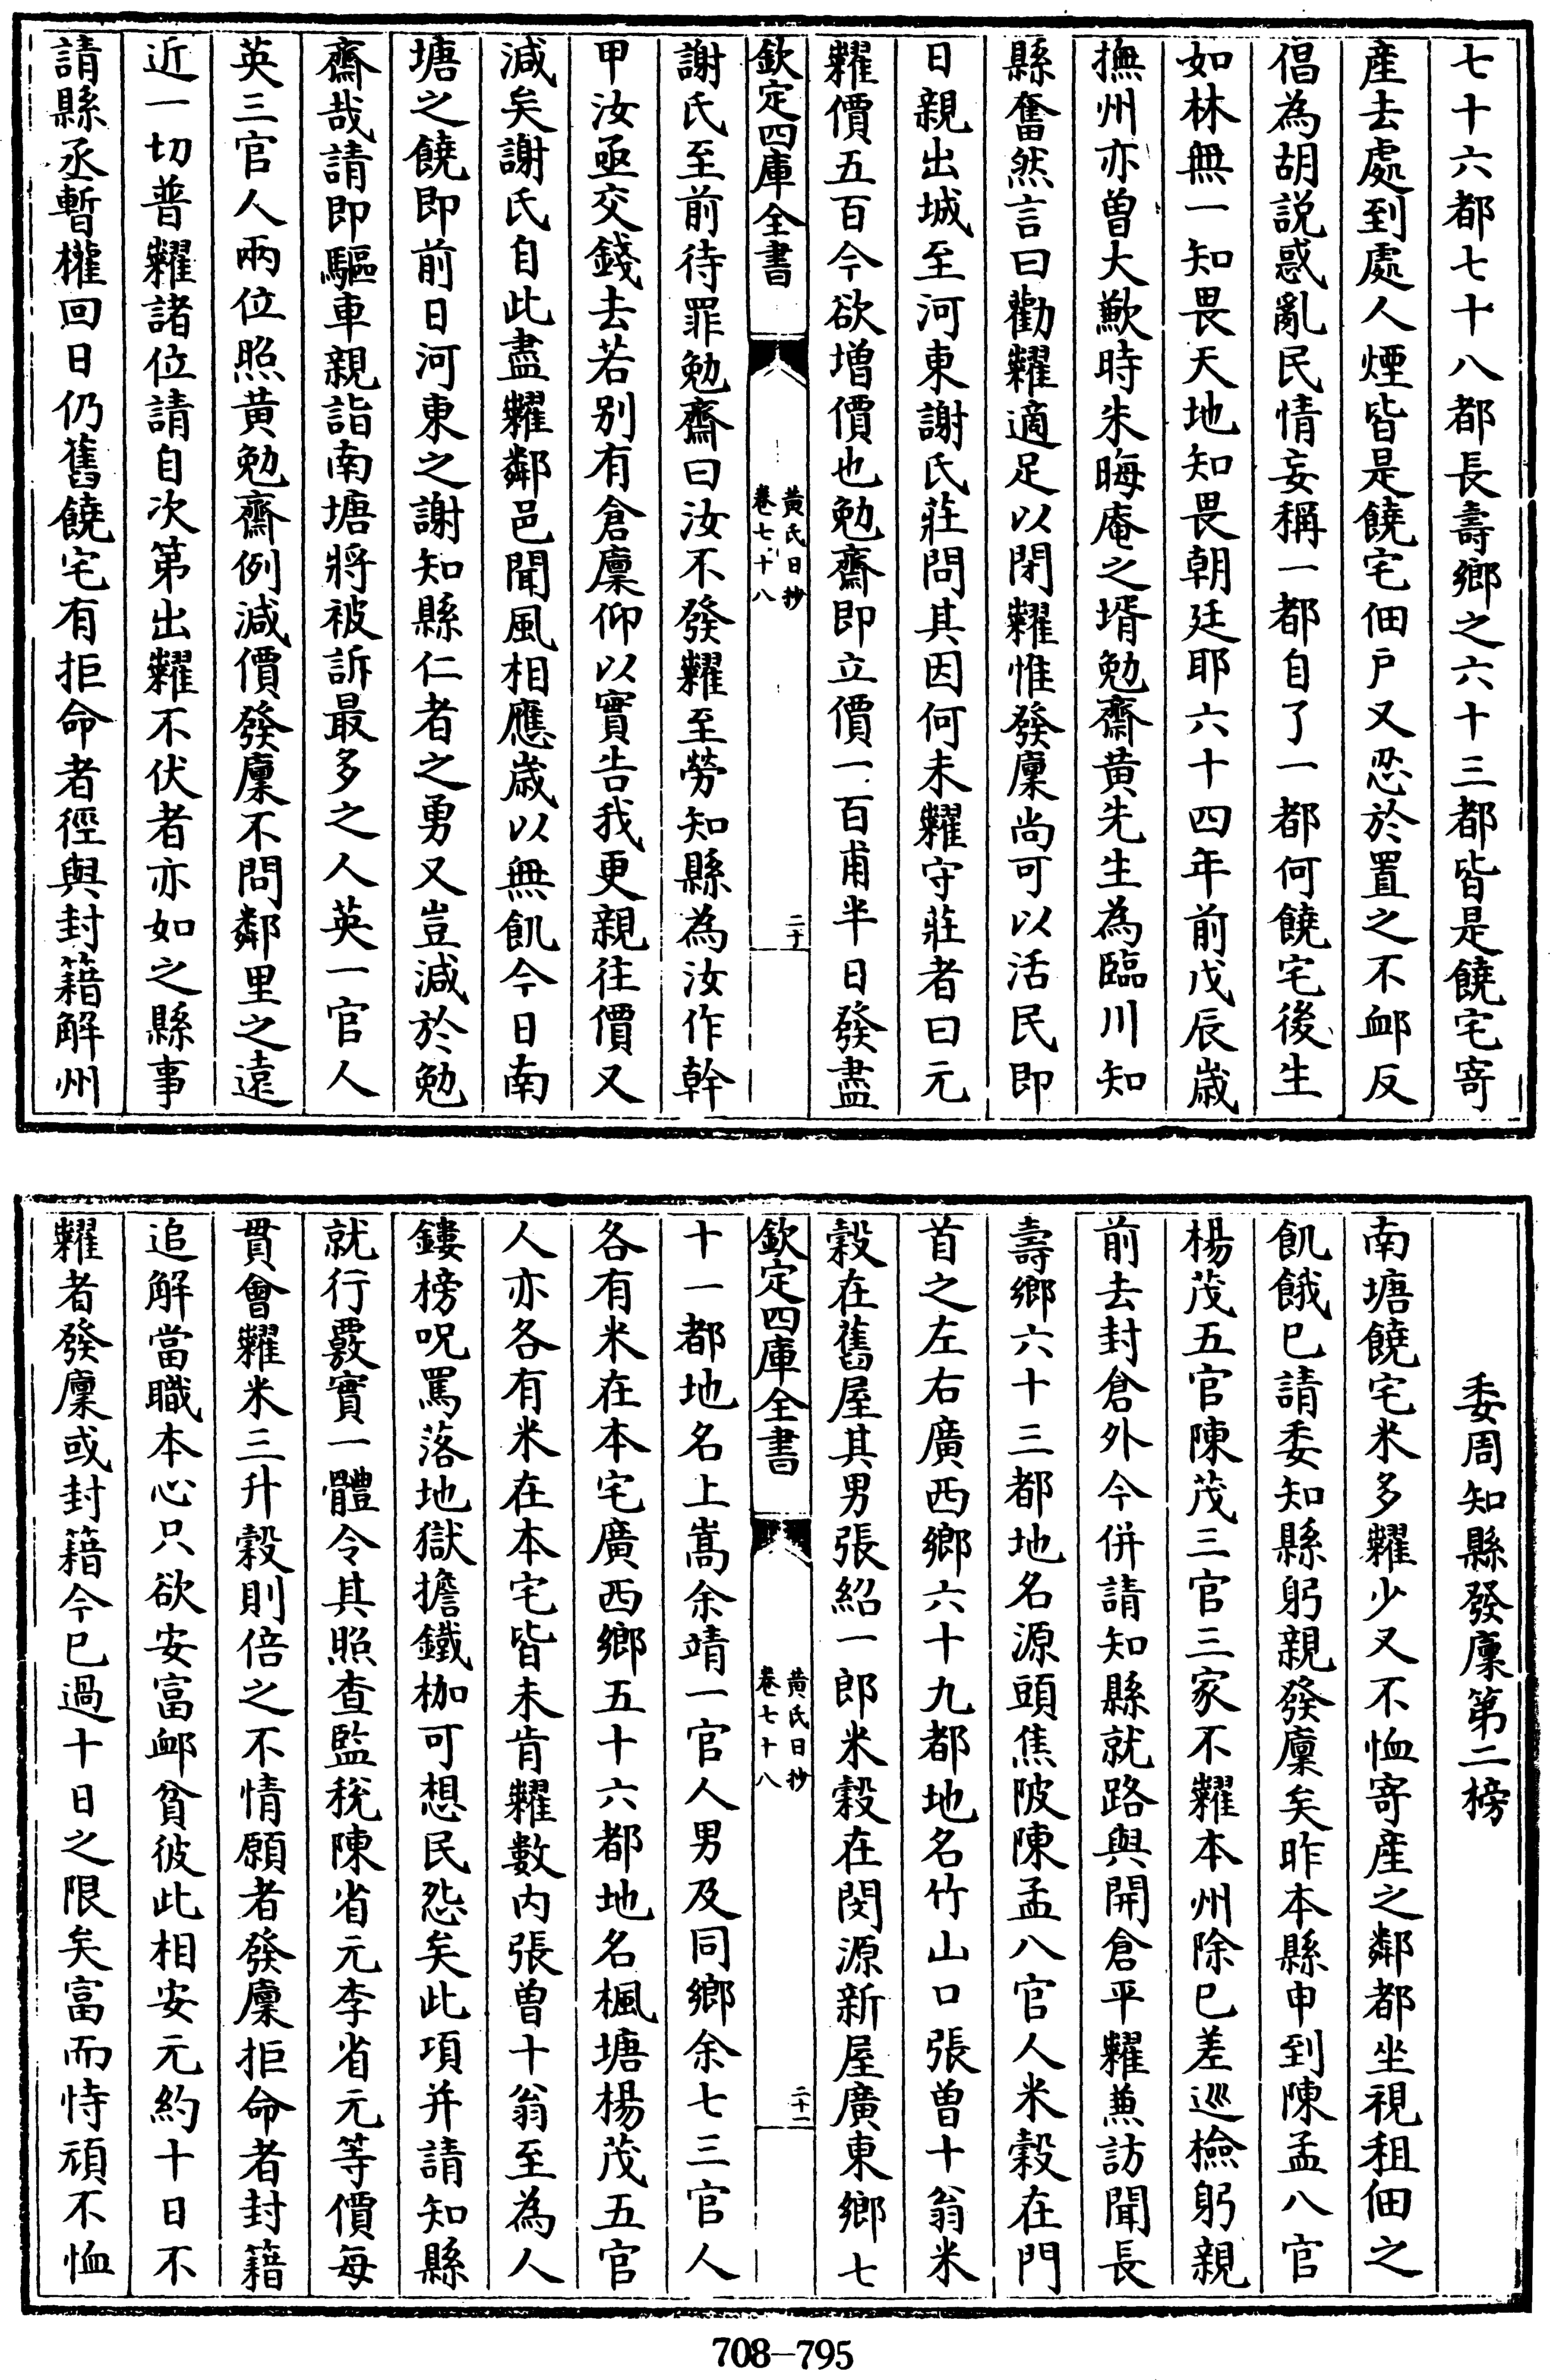 七十六都七十八都長壽鄉之六十三都皆是饒宅寄
產去處到處人煙皆是饒宅佃戶又忍於置之不卹反
倡為胡說惑亂民情妄稱一都自了一都何饒宅後生
如林無一知畏天地知畏朝廷耶六十四年前戊辰歲
撫州亦曾大歉時朱晦庵之壻勉齋黃先生為臨川知
縣奮然言曰勸糶適足以閉糶惟發廩尚可以活民即
日親出城至河東謝氏莊問其因何未糶守莊者曰元
糶價五百今欲增價也勉齋即立價一百甫半日發盡
欽定四庫全書
黃氏日抄
卷七十八
二十
謝氏至前待罪勉齋曰汝不發糶至勞知縣為汝作幹
甲汝亟交錢去若別有倉廩仰以實告我更親往價又
減矣謝氏自此盡糶鄰邑聞風相應歲以無飢今日南
塘之饒即前日河東之謝知縣仁者之勇又豈減於勉
齋哉請即驅車親詣南塘將被訴最多之人英一官人
英三官人兩位照黃勉齋例減價發廩不問鄰里之遠
近一切普糶諸位請自次第出糶不伏者亦如之縣事
請縣丞暫權回日仍舊饒宅有拒命者徑與封籍解州
委周知縣發廩第二榜
南塘饒宅米多糶少又不恤寄產之鄰都坐視租佃之
飢餓已請委知縣躬親發廩矣昨本縣申到陳孟八官
楊茂五官陳茂三官三家不糶本州除已差巡檢躬親
前去封倉外今併請知縣就路與開倉平糶兼訪聞長
壽鄉六十三都地名源頭焦陂陳孟八官人米穀在門
首之左右廣西鄉六十九都地名竹山口張曾十翁米
穀在舊屋其男張紹一郎米穀在閔源新屋廣東鄉七
欽定四庫全書
黃氏日抄
卷七十八
二十一
十一都地名上嵩余靖一官人男及同鄉余七三官人
各有米在本宅廣西鄉五十六都地名楓塘楊茂五官
人亦各有米在本宅皆未肯糶數內張曾十翁至為人
鏤榜呪罵落地獄擔鐵枷可想民怨矣此項并請知縣
就行覈實一體令其照查監稅陳省元李省元等價每
貫會糶米三升穀則倍之不情願者發廩拒命者封籍
追解當職本心只欲安富卹貧彼此相安元約十日不
糶者發廩或封籍今已過十日之限矣富而恃頑不恤
708-795